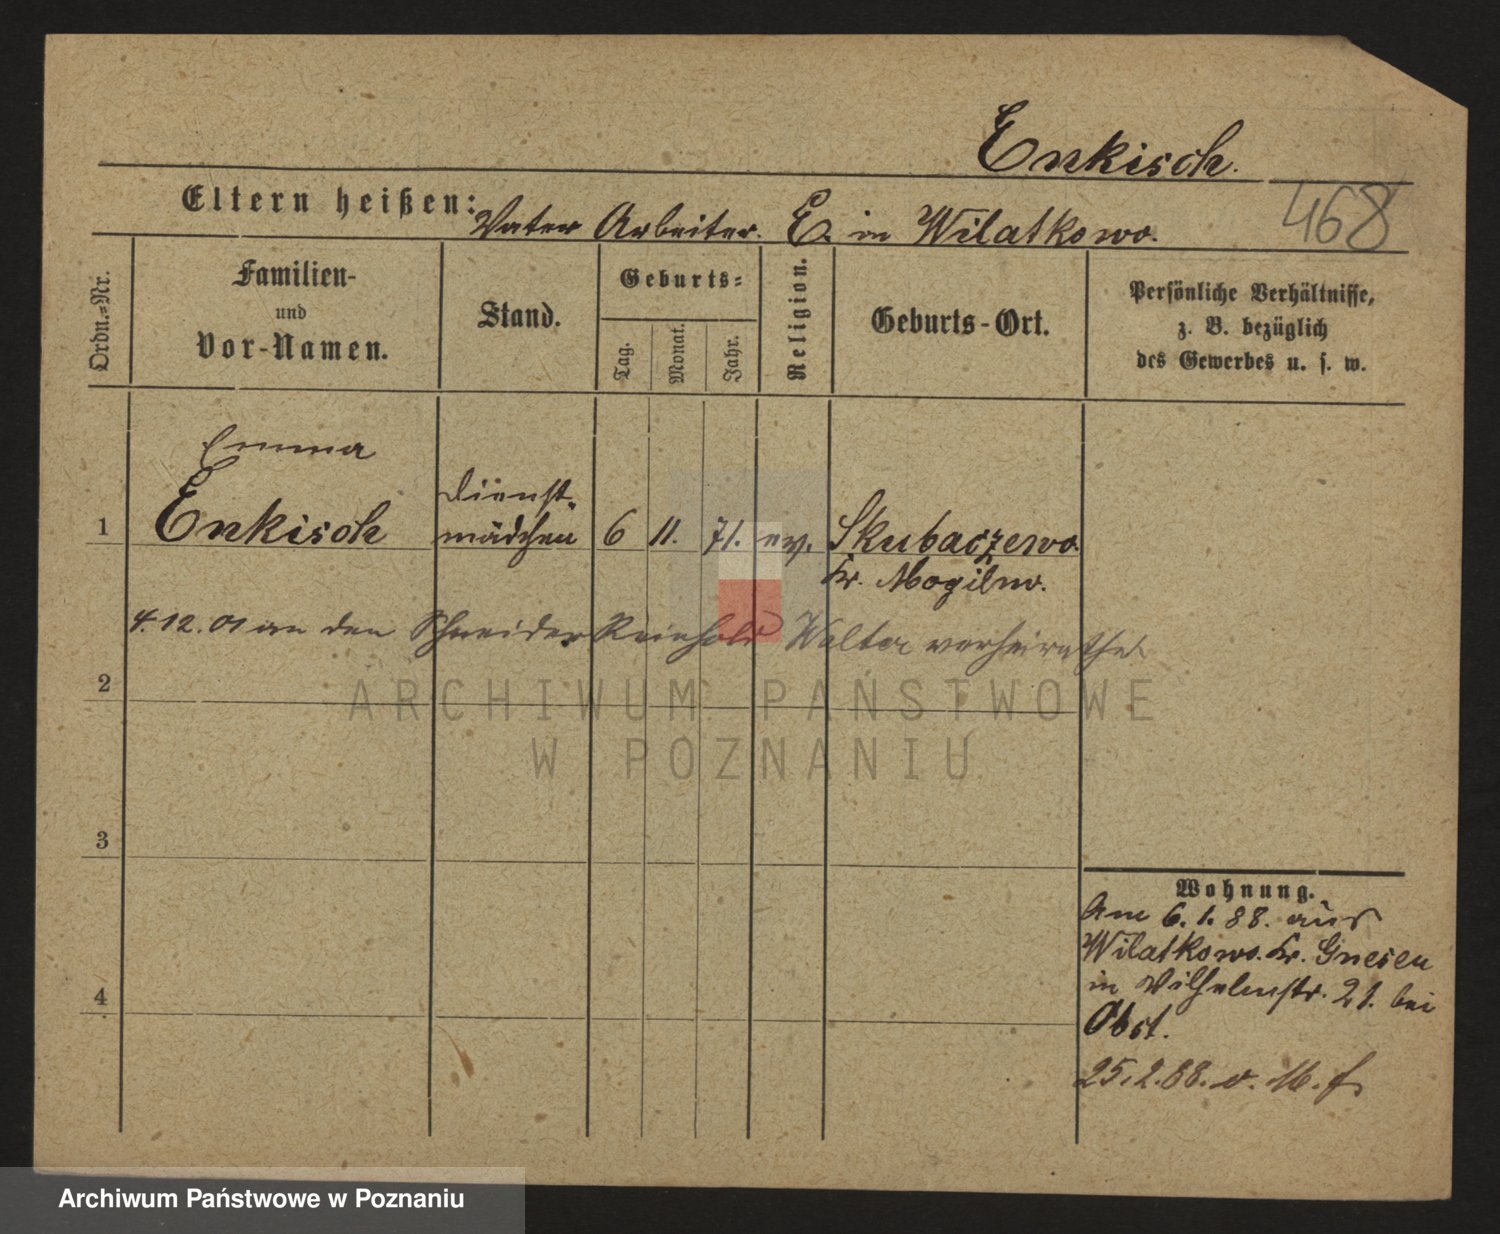 Enkisch.
468
Eltern heißen: Vater Arbeiter. E. in Wilatkowo.
Ordn.=Nr.
Familien-
und
Vor-Namen.
Stand.
Geburts=
Tag.
Monat.
Jahr.
Religion.
Geburts-Ort.
Persönliche Verhältnisse,
z. B. bezüglich
des Gewerbes u. s. w.
Emma
1 Enkisch Dienst-
mädchen 6 11. 71. ev. Skubaczewo
Kr. Mogilno.
4.12.01 an den Schneider Reinhold Walter verheirathet
2
3
4
Wohnung.
Am 6.1.88. aus
Wilatkowo. Kr. Gnesen
in Wilhelmstr. 21. bei
Obst.
25.2.88. v. M. f.
ARCHIWUM PAŃSTWOWE
W POZNANIU
Archiwum Państwowe w Poznaniu